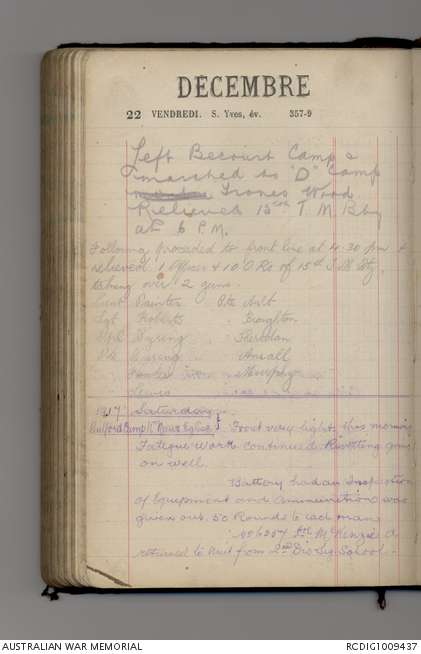 DECEMBRE
22 VENDREDI. S. Yves, év. 357-9
Left Becourt Camp &
marched to "D" Camp
Trones Wood
Relieved 15th T. M. Bty
at 6 P.M.
Following proceeded to front line at 4.30 pm &
relieved 1 Officer & 10 O Rs of 15th T.M. Bty,
taking over 2 guns.
Lieut Painter Pte Ault
Sgt Roberts " Broughton
Cpl " Sheridan
Pte " Ansall
" Murphy
Lewis
1917 Saturday
Frost very light this morning
Fatigue work continued. Rivetting going
on well.
Battery had an Inspection
of Equipment and ammunition was
given out. 50 Rounds to each man.
McKenzie
returned to Unit from 2nd Div Sig School.
AUSTRALIAN WAR MEMORIAL
RCDIG1009437